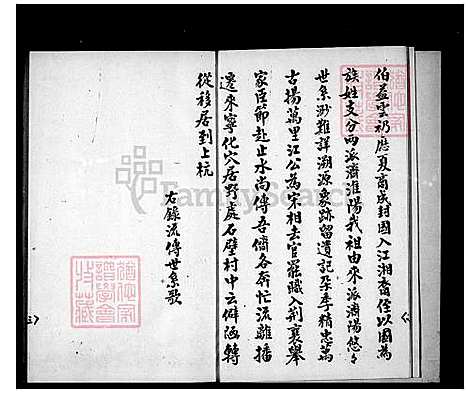 伯益雲礽應夏商成封國入江湘裔侄以國為
族姓支分兩派濟淮陽我祖由來派濟陽悠々
世系渺難詳溯源象跡留遺記孕季精忠萬
古揚萬里江公為宋相去官罷職入荆襄舉
家臣節赴止水尚傳吾儕各奔忙流離播
遷來寧化穴居野處石壁村中云僻陋轉
從移居到上杭
右錄流傳世系歌
FamilySearch